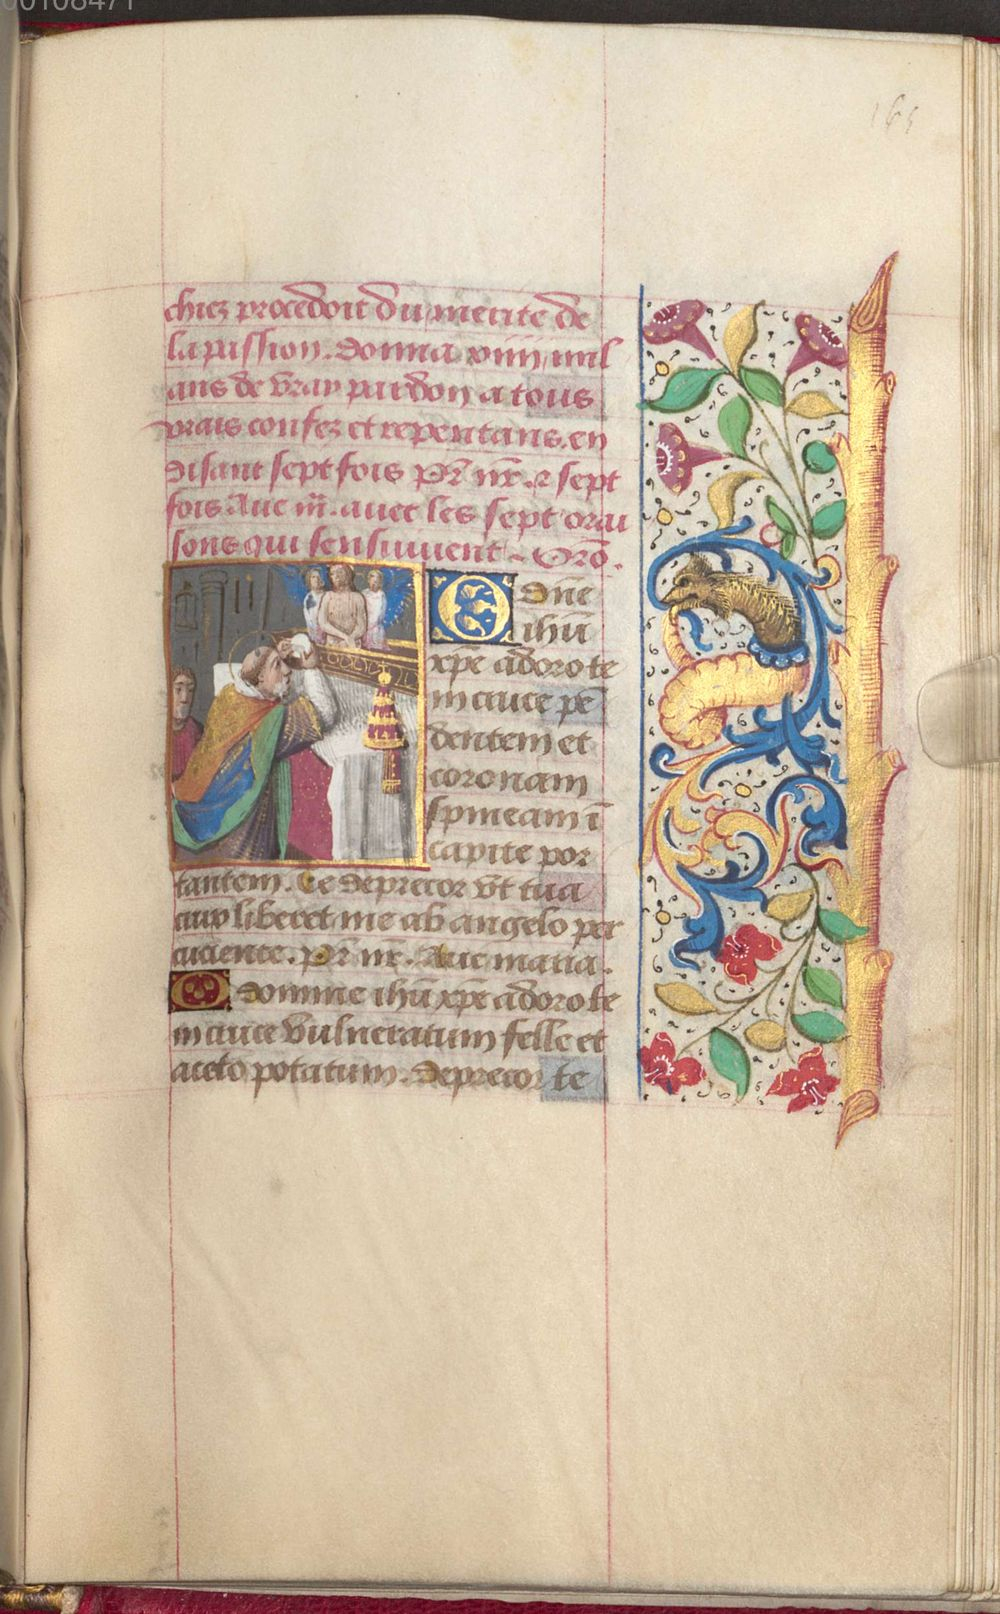 00108471
165
chiez procedoit du merite de
la passion. Donna xiiii mil
ans de vray pardon a tous
vrais confez et repentans, en
disant sept fois pr nr. et sept
fois Aue m. auec les sept orai
sons qui sensuiuent. Oro.
O dñe
ihũ
xp̃e adoro te
in cruce pẽ
dentem et
coronam
spineam ĩ
capite por
tantem. Te deprecor vt tua
crux liberet me ab angelo per
cuciente. pr nr. Aue maria.
O domine ihũ xp̃e adoro te
in cruce vulneratum felle et
aceto potatum. Deprecor te